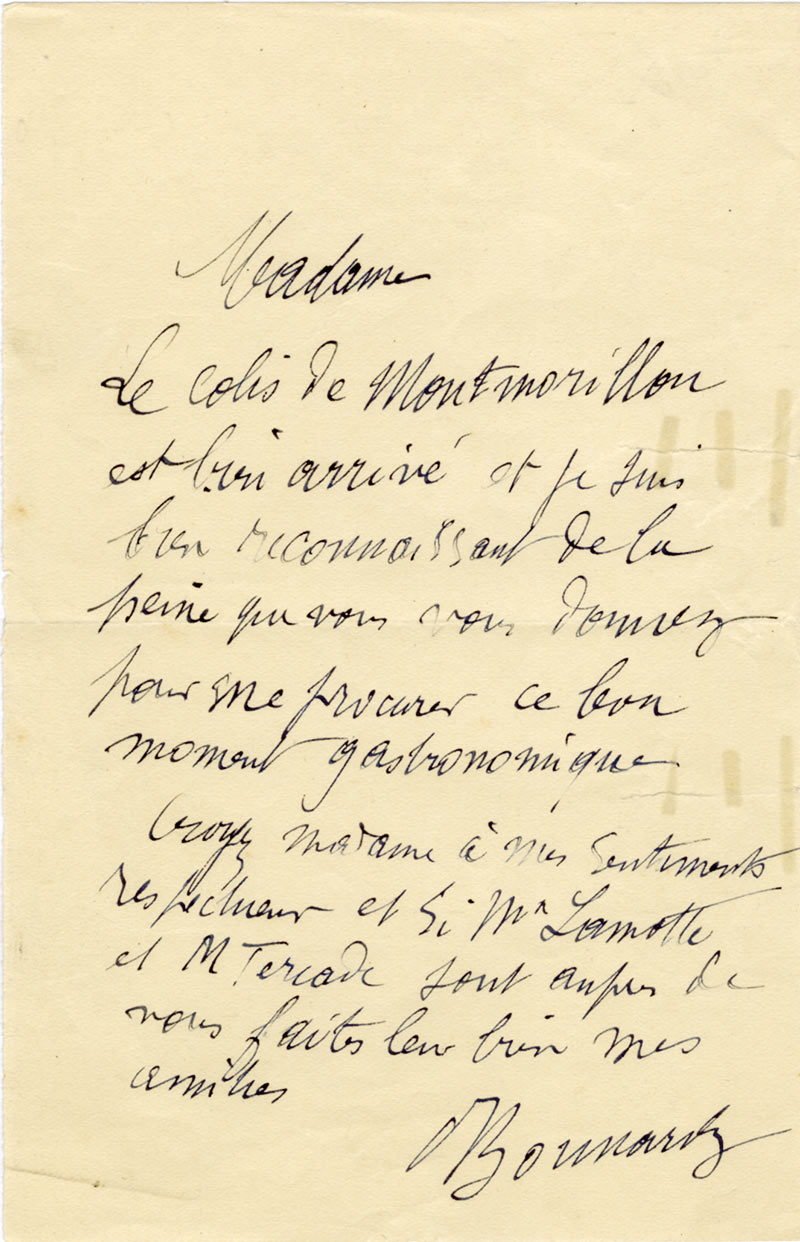 Madame
Le colis de Montmorillon
est bien arrivé et je suis
bien reconnaissant de la
peine que vous vous donnez
pour me procurer ce bon
moment gastronomique
Croyez madame à mes sentiments
respectueux et si Mr Lamotte
et M Teriade sont aupres de
vous faites leur bien mes
amities
PBonnard